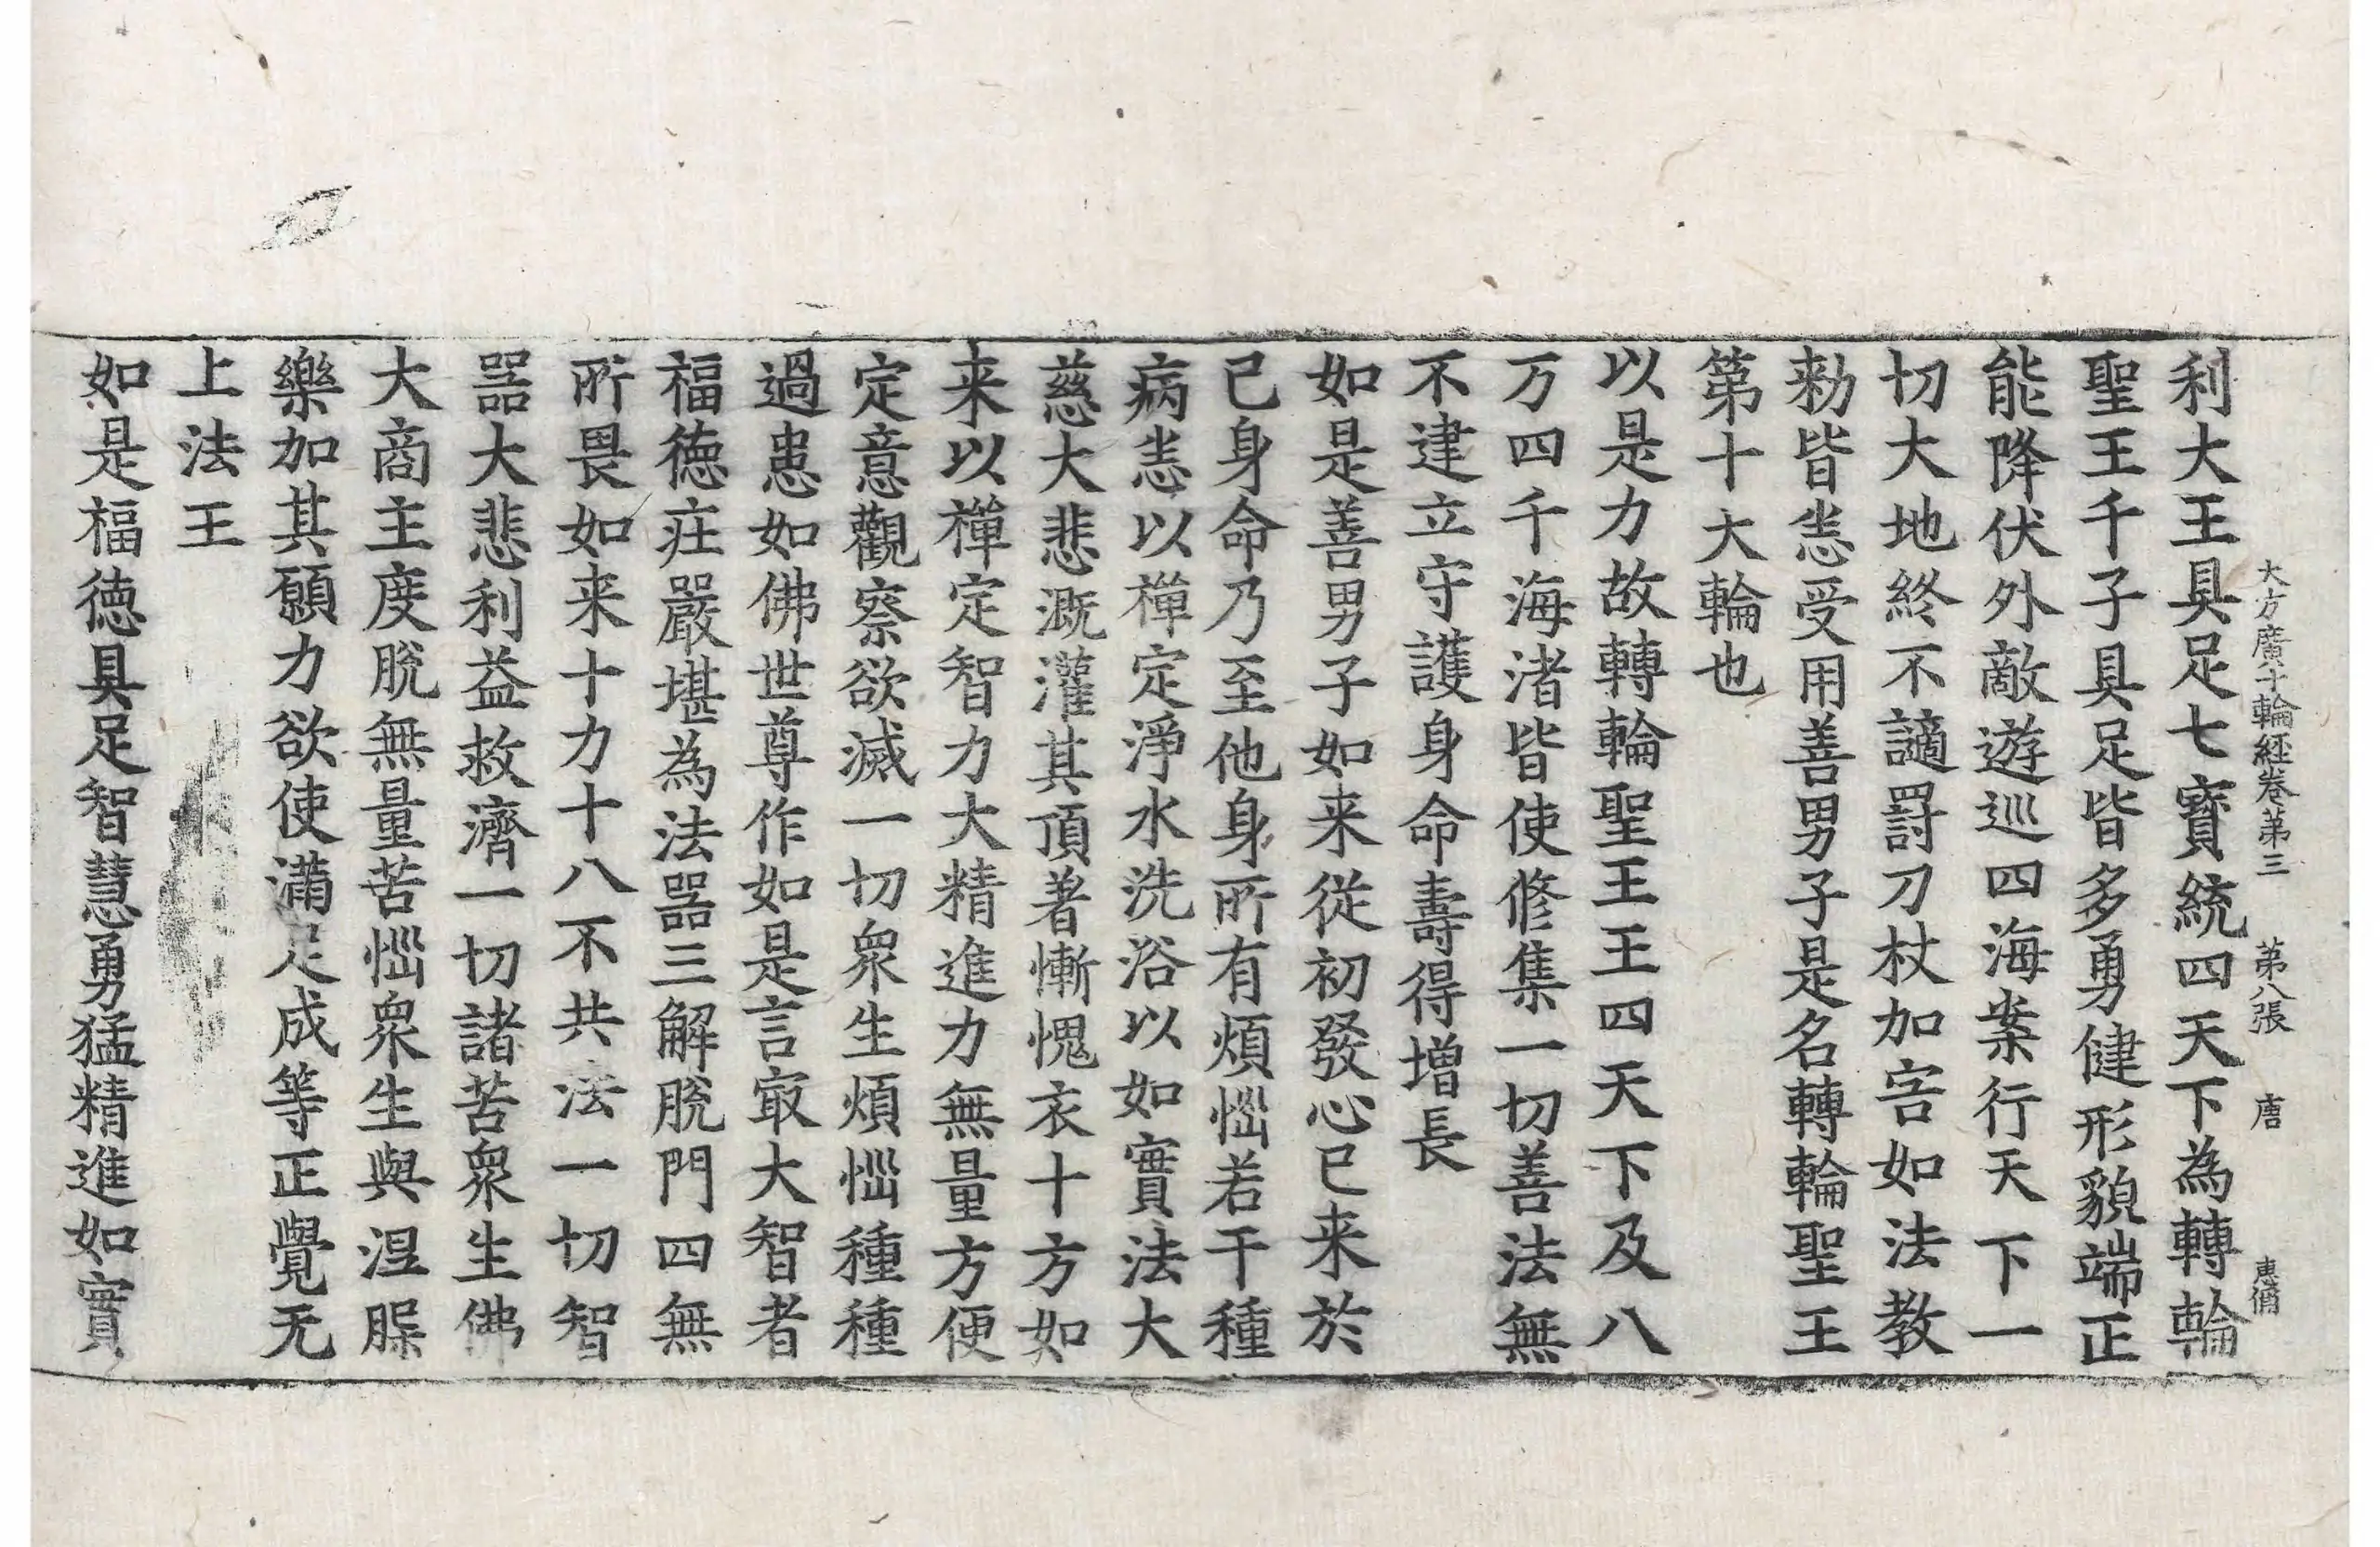 大方廣十輪経卷第三　第八張　唐　惠脩
利大王具足七寳統四天下為轉輪
聖王千子具足皆多勇健形貌端正
能降伏外敵遊巡四海案行天下一
切大地終不讁罰刀杖加害如法教
勑皆悉受用善男子是名轉輪聖王
第十大輪也
以是力故轉輪聖王王四天下及八
万四千海渚皆使修集一切善法無
不建立守護身命壽得增長
如是善男子如来從初發心已来於
己身命乃至他身所有煩惱若干種
病悉以禪定淨水洗浴以如實法大
慈大悲溉灌其頂著慚愧衣十方如
来以禪定智力大精進力無量方便
定意觀察欲滅一切衆生煩惱種種
過患如佛世尊作如是言冣大智者
福徳莊嚴堪為法器三解脫門四無
所畏如来十力十八不共法一切智
器大悲利益救濟一切諸苦衆生佛
大商主度脫無量苦惱衆生與涅槃
樂加其願力欲使滿足成等正覺无
上法王
如是福德具足智慧勇猛精進如實